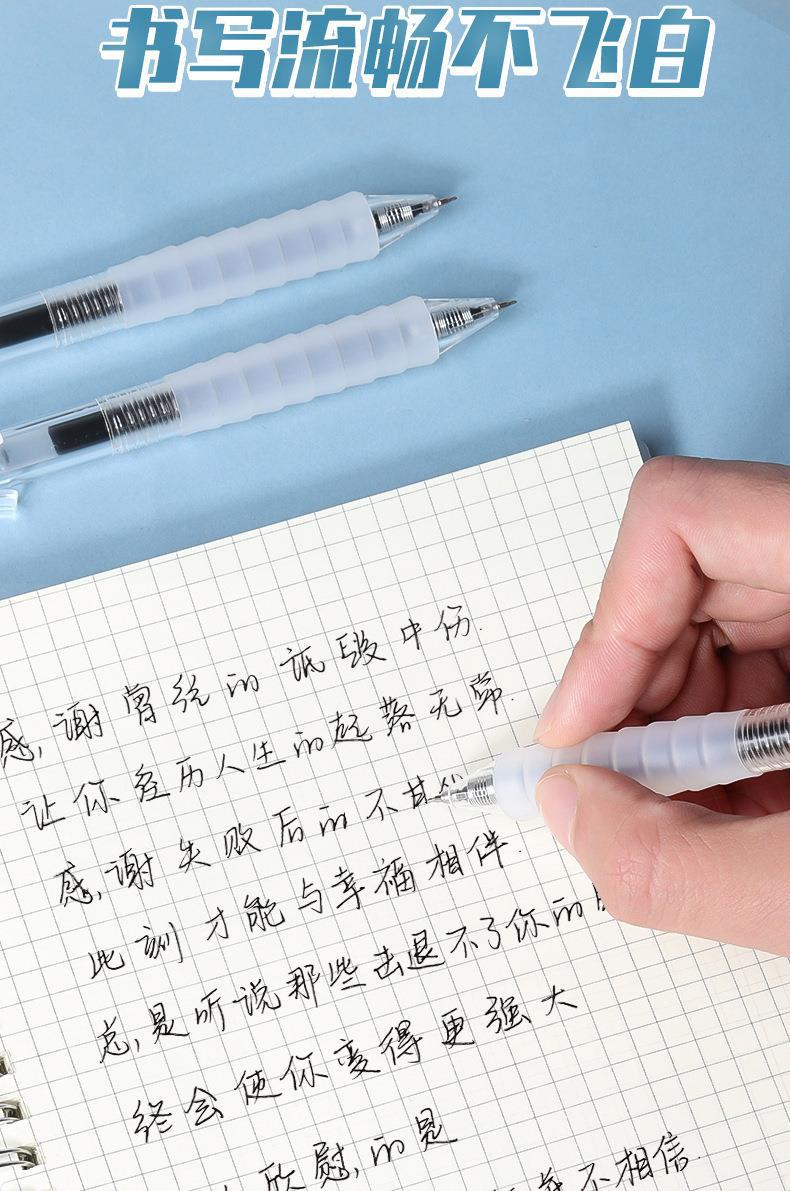 书写流畅不飞白
感谢曾经的诋毁中伤.
让你经历人生的起落无常.
感谢失败后的不甘
此刻才能与幸福相伴.
总是听说那些击退不了你的
终会使你变得更强大
欣慰的是
不相信.